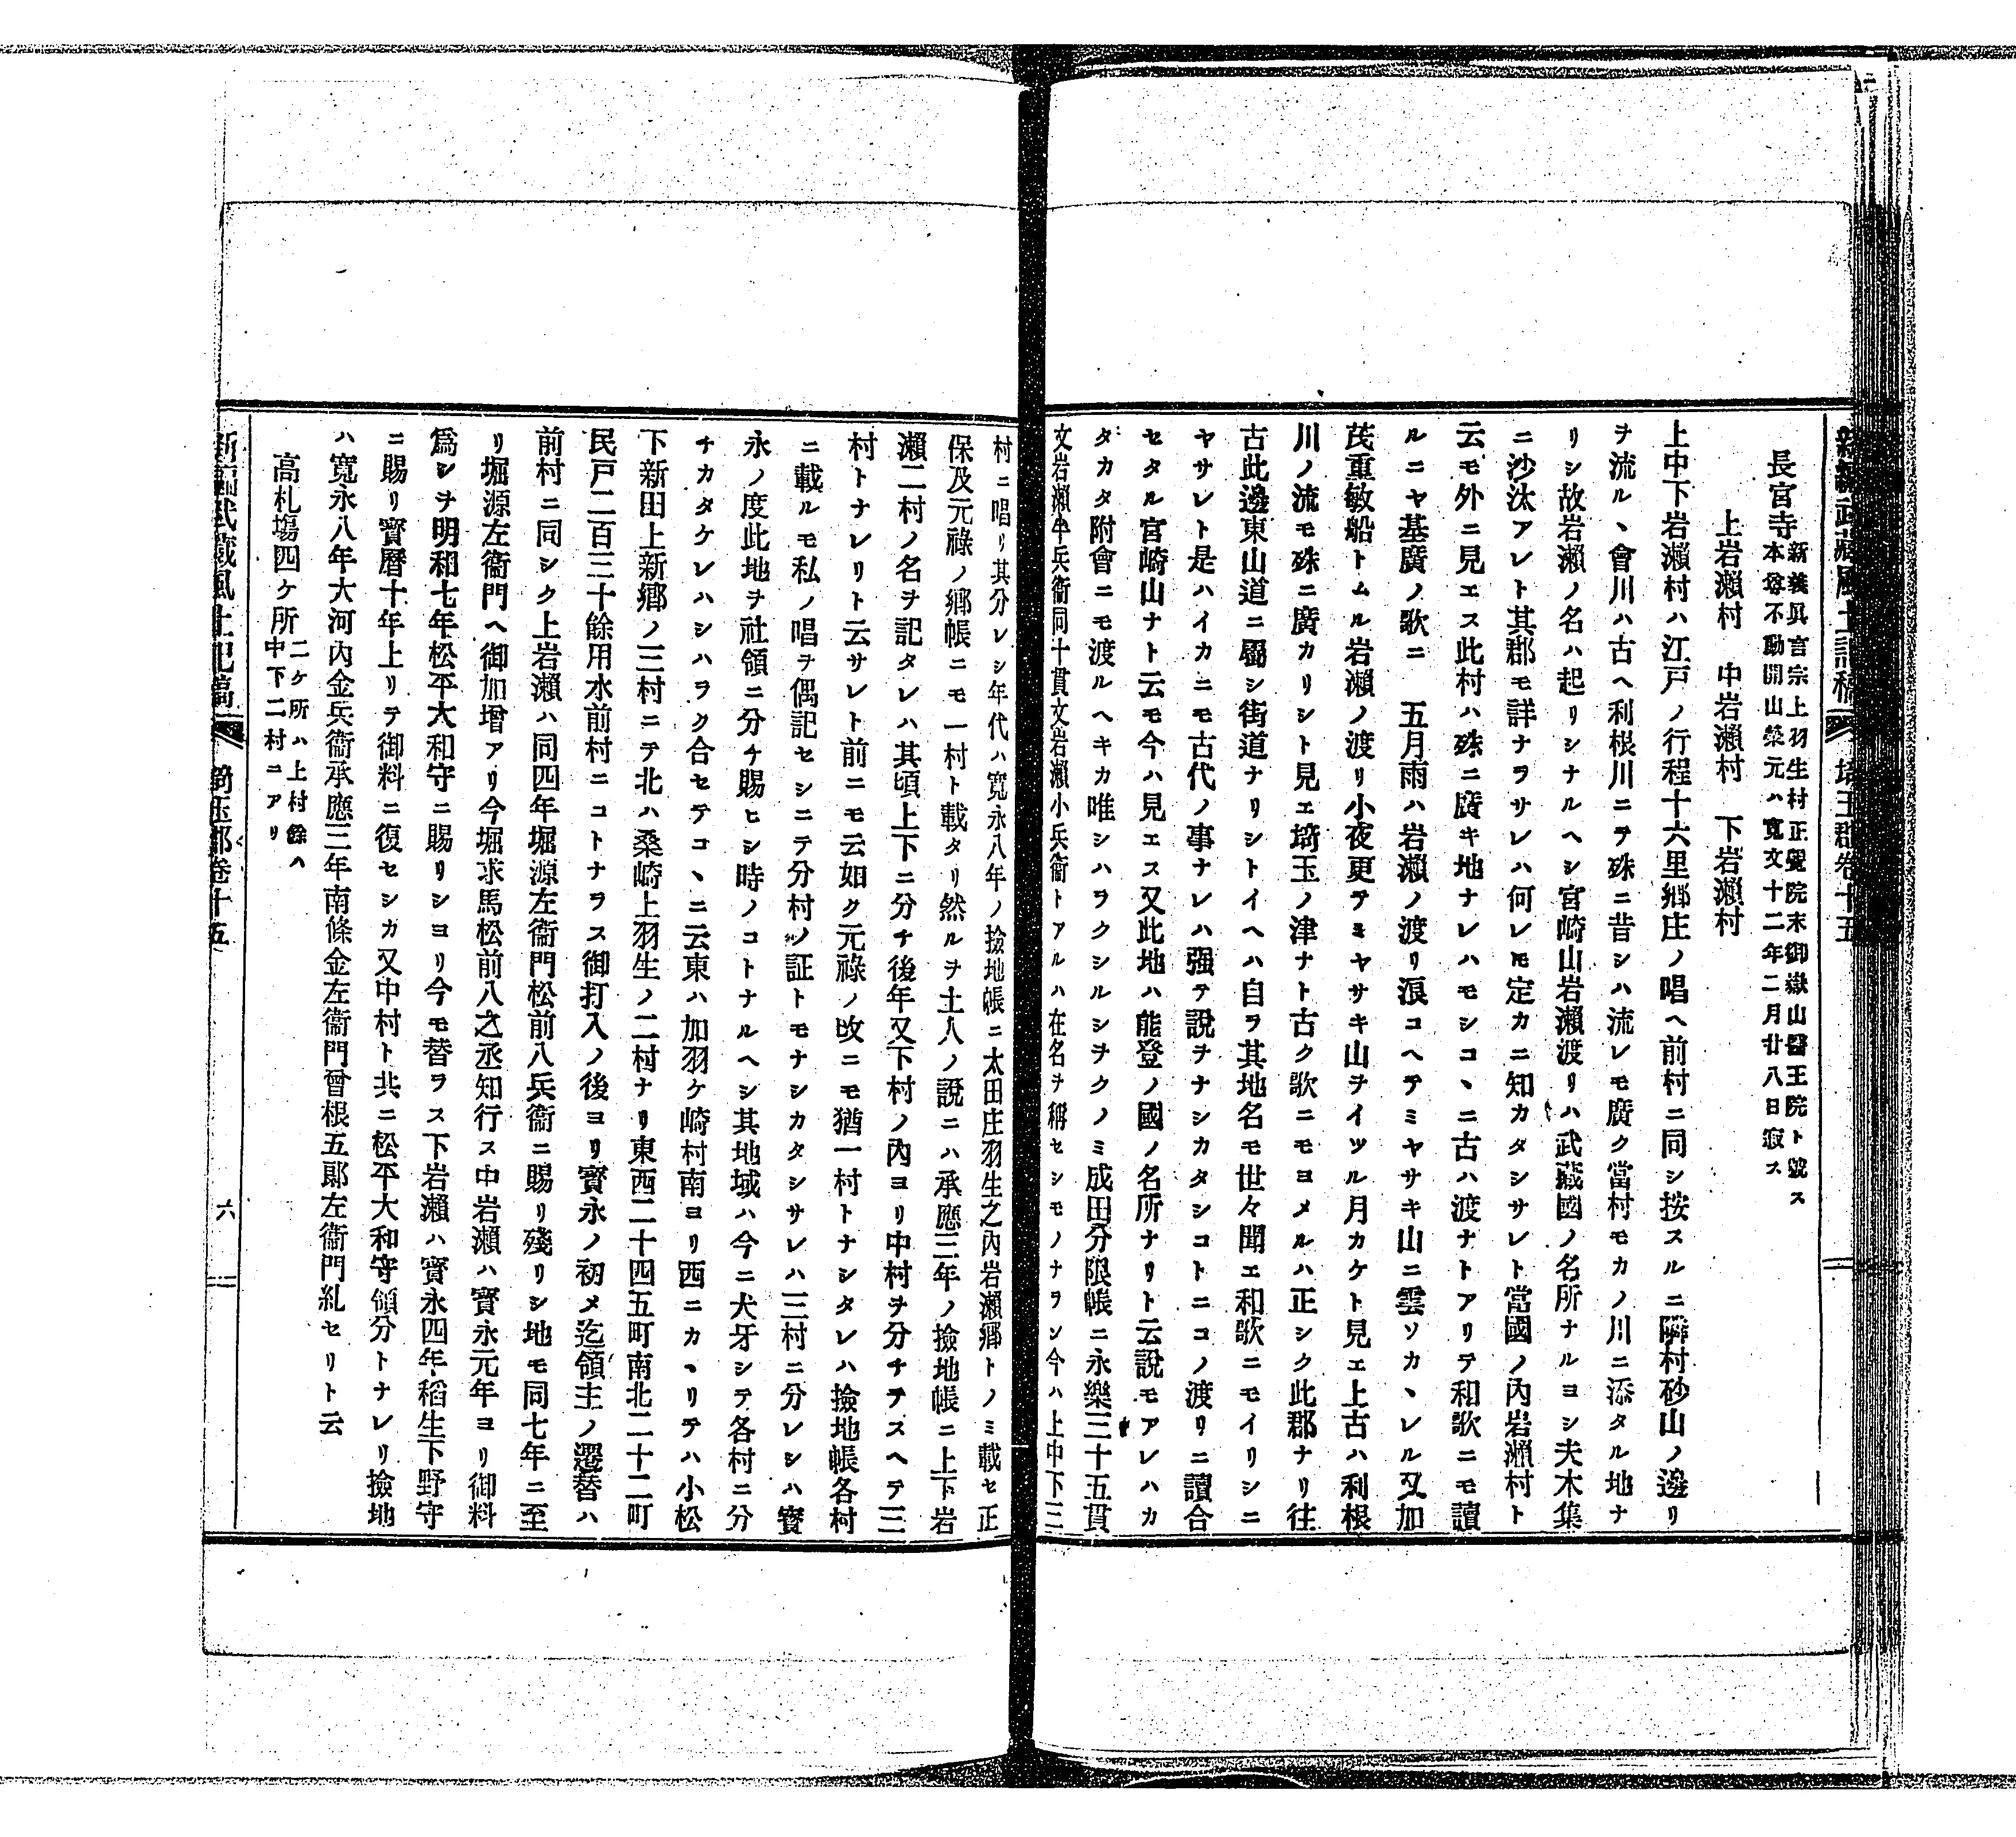 新編武藏風土記稿 埼玉郡卷十五 二
長宮寺 新義眞言宗上羽生村正覺院末御嶽山醫王院ト號ス
本尊不動開山榮元ハ寛文十二年二月廿八日寂ス
上岩瀨村 中岩瀨村 下岩瀨村
上中下岩瀨村ハ江戸ノ行程十六里鄕庄ノ唱ヘ前村ニ同シ按スルニ隣村砂山ノ邊リ
ヲ流ルヽ會川ハ古ヘ利根川ニヲ殊ニ昔シハ流レモ廣ク當村モカノ川ニ添タル地ナ
リシ故岩瀨ノ名ハ起リシナルヘシ宮崎山岩瀨渡リハ武藏國ノ名所ナルヨシ夫木集
ニ沙汰アレト其郡モ詳ナラサレハ何レモ定カニ知カタシサレト當國ノ內岩瀨村ト
云モ外ニ見エス此村ハ殊ニ廣キ地ナレハモシコヽニ古ハ渡ナトアリテ和歌ニモ讀
ルニヤ基廣ノ歌ニ 五月雨ハ岩瀨ノ渡リ浪コヘテミヤサキ山ニ雲ソカヽレル又加
茂重敏船トムル岩瀨ノ渡リ小夜更テミヤサキ山ヲイツル月カケト見エ上古ハ利根
川ノ流モ殊ニ廣カリシト見エ埼玉ノ津ナト古ク歌ニモヨメルハ正シク此郡ナリ往
古此邊東山道ニ屬シ街道ナリシトイヘハ自ラ其地名モ世々聞エ和歌ニモイリシニ
ヤサレト是ハイカニモ古代ノ事ナレハ强テ說ヲナシカタシコトニコノ渡リニ讀合
セタル宮崎山ナト云モ今ハ見エス又此地ハ能登ノ國ノ名所ナリト云說モアレハカ
タカタ附會ニモ渡ルヘキカ唯シハラクシルシヲクノミ成田分限帳ニ永樂三十五貫
文岩瀨半兵衞同十貫文岩瀨小兵衞トアルハ在名ヲ稱セシモノナラン今ハ上中下三
村ニ唱リ其分レシ年代ハ寛永八年ノ撿地帳ニ太田庄羽生之內岩瀨鄕トノミ載セ正
保及元祿ノ鄕帳ニモ一村ト載タリ然ルヲ土人ノ說ニハ承應三年ノ撿地帳ニ上下岩
瀨二村ノ名ヲ記タレハ其頃上下ニ分チ後年又下村ノ內ヨリ中村ヲ分チテスヘテ三
村トナレリト云サレト前ニモ云如ク元祿ノ改ニモ猶一村トナシタレハ撿地帳各村
ニ載ルモ私ノ唱ヲ偶記セシニテ分村ノ証トモナシカタシサレハ三村ニ分レシハ寶
永ノ度此地ヲ社領ニ分チ賜ヒシ時ノコトナルヘシ其地域ハ今ニ犬牙シテ各村ニ分
チカタケレハシハラク合セテコヽニ云東ハ加羽ケ崎村南ヨリ西ニカヽリテハ小松
下新田上新鄕ノ三村ニテ北ハ桑崎上羽生ノ二村ナリ東西二十四五町南北二十二町
民戸二百三十餘用水前村ニコトナラス御打入ノ後ヨリ寳永ノ初メ迄領主ノ遷替ハ
前村ニ同シク上岩瀨ハ同四年堀源左衞門松前八兵衞ニ賜リ殘リシ地モ同七年ニ至
リ堀源左衞門ヘ御加增アリ今堀求馬松前八之丞知行ス中岩瀨ハ寶永元年ヨリ御料
爲シヲ明和七年松平大和守ニ賜リシヨリ今モ替ラス下岩瀨ハ寶永四年稻生下野守
ニ賜リ寶曆十年上リテ御料ニ復セシカ又中村ト共ニ松平大和守領分トナレリ撿地
ハ寬永八年大河內金兵衞承應三年南條金左衞門曾根五郞左衞門糺セリト云
高札塲四ケ所 二ケ所ハ上村餘ハ
中下二村ニアリ
新編武藏風土記稿 埼玉郡卷十五 六 二